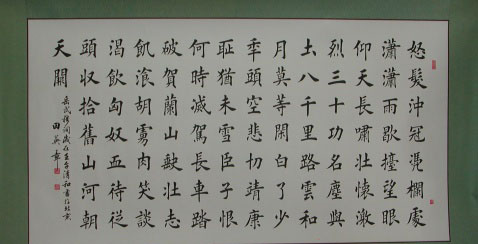 怒髮沖冠憑欄處
瀟瀟雨歇擡望眼
仰天長嘯壯懷激
烈三十功名塵與
土八千里路雲和
月莫等閑白了少
秊頭空悲切靖康
恥猶未雪臣子恨
何時滅駕長車踏
破賀蘭山缺壯志
飢飡胡虜肉笑談
渴飲匈奴血待從
頭収拾舊山河朝
天闕
岳武穆詞歲在壬午清和書於北京
田英章